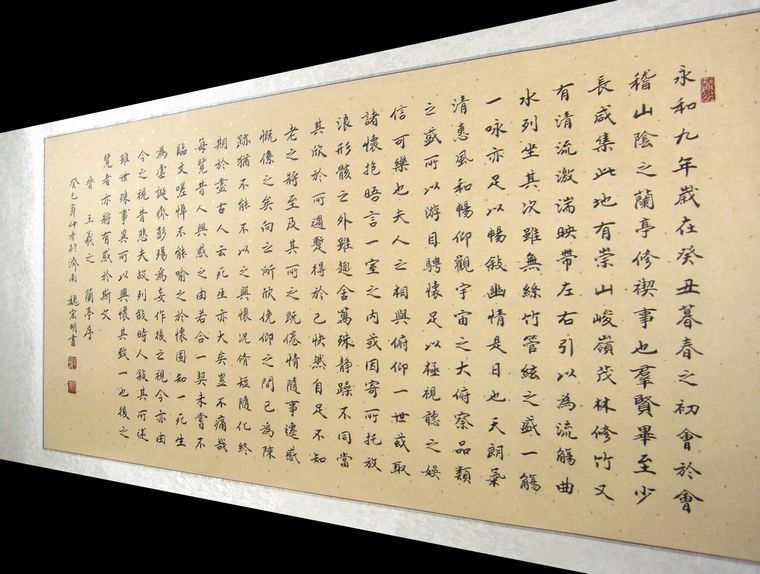 永和九年歲在癸丑暮春之初會於會
稽山陰之蘭亭修禊事也羣賢畢至少
長咸集此地有崇山峻嶺茂林修竹又
有清流激湍映帶左右引以為流觴曲
水列坐其次雖無絲竹管絃之盛一觴
一咏亦足以暢敘幽情是日也天朗氣
清惠風和暢仰觀宇宙之大俯察品類
之盛所以游目騁懷足以極視聽之娛
信可樂也夫人之相與俯仰一世或取
諸懷抱晤言一室之內或因寄所托放
浪形骸之外雖趣舍萬殊静躁不同當
其欣於所遇蹔得於己快然自足不知
老之將至及其所之既倦情隨事遷感
慨係之矣向之所欣俛仰之間已為陳
跡猶不能不以之興懷況脩短隨化終
期於盡古人云死生亦大矣豈不痛哉
每覽昔人興感之由若合一契未嘗不
臨文嗟悼不能喻之於懷固知一死生
為虛誕齊彭殤為妄作後之視今亦由
今之視昔悲夫故列敘時人錄其所述
雖世殊事異可以興懷其致一也後之
覽者亦將有感於斯文
晉 王羲之 蘭亭序
癸巳年仲春於濟南 魏宗明書